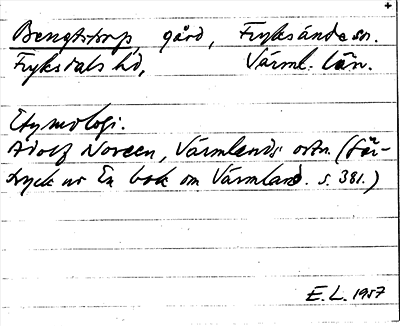 +
Bengtstorp, gård, Fryksände sn.
Fryksdals hd, Värml. län.
Etymologi.
Adolf Noreen, Värmlands ortn. (Sär-
tryck ur En bok om Värmland. s. 381.)
E.L. 1957